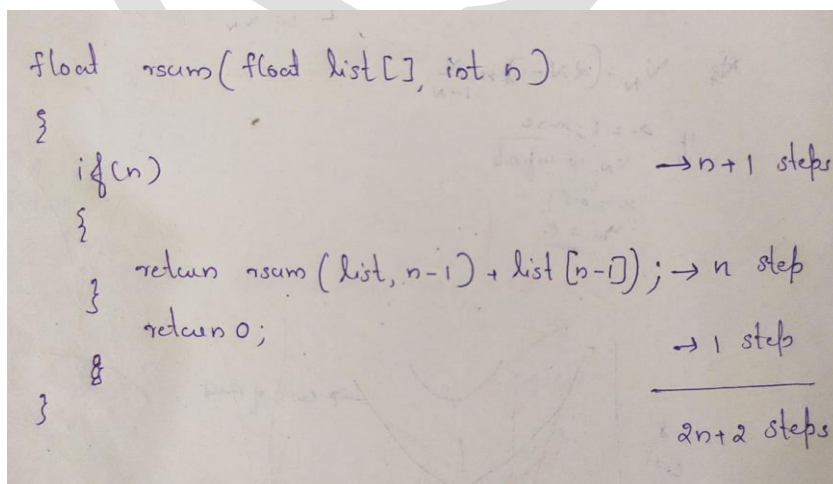 float rsum(float list[], int n)
{
if(n) → n+1 steps
{
return rsum(list, n-1) + list[n-1]); → n step
}
return 0; → 1 step
}
2n+2 steps